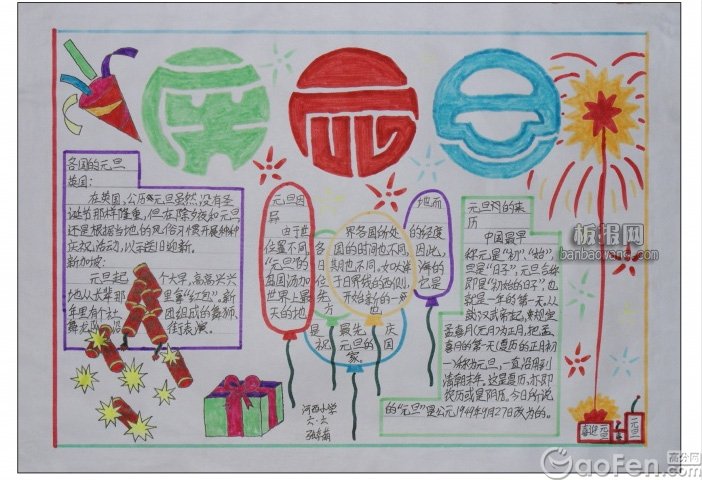 庆元旦
各国的元旦
英国:
在英国,公历元旦虽然没有圣
诞节那样隆重,但在除夕夜和元旦
还是根据当地的风俗习惯开展种种
庆祝活动,以示送旧迎新。
新加坡:
元旦起个大早,高高兴兴
地从长辈那里拿“红包”。新
年里有个社团组成的舞狮、
街表演。
元旦因
地而
异
由于世
界各国所处
的经度
位置不同,
国的时间也不同,
因此,
“元旦”的
日期也不同,
世界上最
开始新的一
天的地
是
最先
庆
祝
元旦的国
家。
元旦的来
历
中国最早
称元是“初”、“始”,
旦是“日子”,元旦合称
即是“初始的日子”,也
就是一年的第一天。从
汉武帝起,规定
孟喜月(元月)为正月,把孟
喜月的第一天(夏历的正月初
一)称为元旦,一直沿用到
清朝末年。这是夏历,亦即
农历或是阴历。今日所说
的“元旦”是公元1949年9月27日改为的。
河西小学
六.六
喜迎
元旦
板报网
banbaowang.com
高分网
GaoFen.com